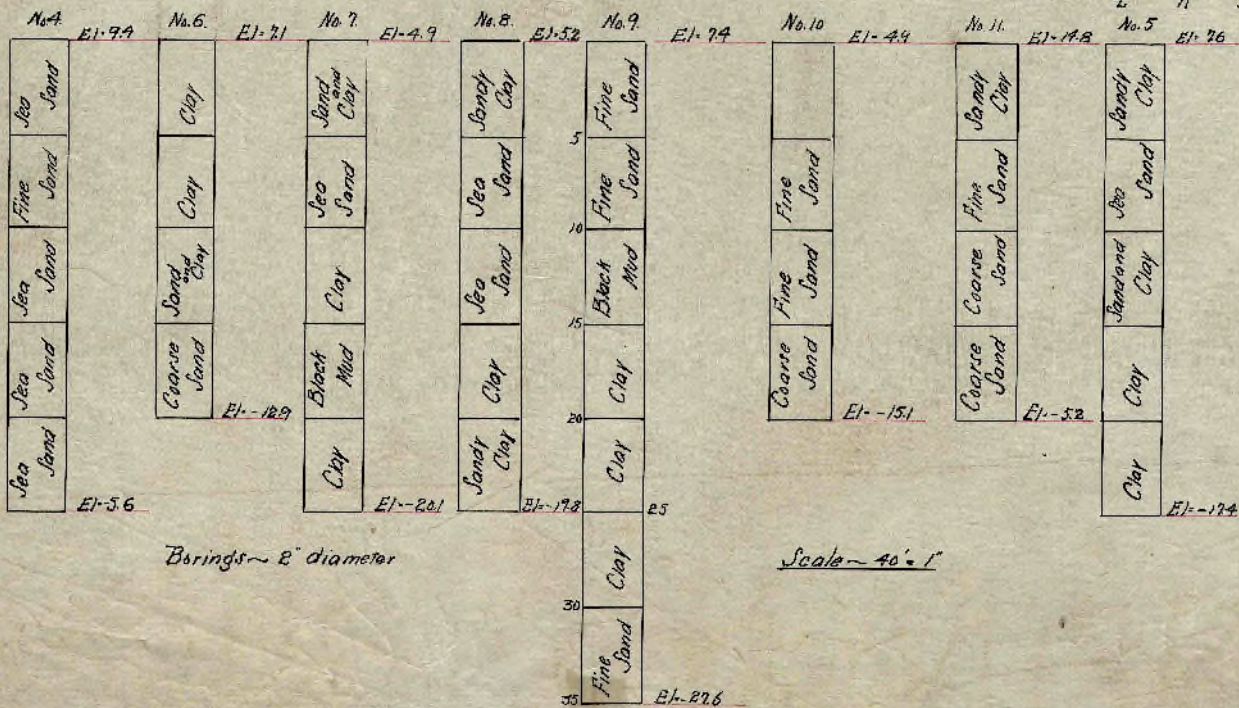 No.4. El-9.4
Sea Sand
Fine Sand
Sea Sand
Sea Sand
Sea Sand
El-5.6
No.6. El-7.1
Clay
Clay
Sand and Clay
Coarse Sand
El--12.9
No.7. El-4.9
Sand and Clay
Sea Sand
Clay
Black Mud
Clay
El--20.1
No.8. El-5.2
Sandy Clay
Sea Sand
Sea Sand
Clay
Sandy Clay
El--19.8
No.9. El-7.4
Fine Sand
5
Fine Sand
10
Black Mud
15
Clay
20
Clay
25
Clay
30
Fine Sand
35
El--27.6
No.10 El-4.9
Fine Sand
Fine Sand
Coarse Sand
El--15.1
No.11. El-14.8
Sandy Clay
Fine Sand
Coarse Sand
Coarse Sand
El--5.2
No.5 El-7.6
Sandy Clay
Sea Sand
Sand and Clay
Clay
Clay
El--17.4
Borings~ 2" diameter
Scale~ 40'=1"